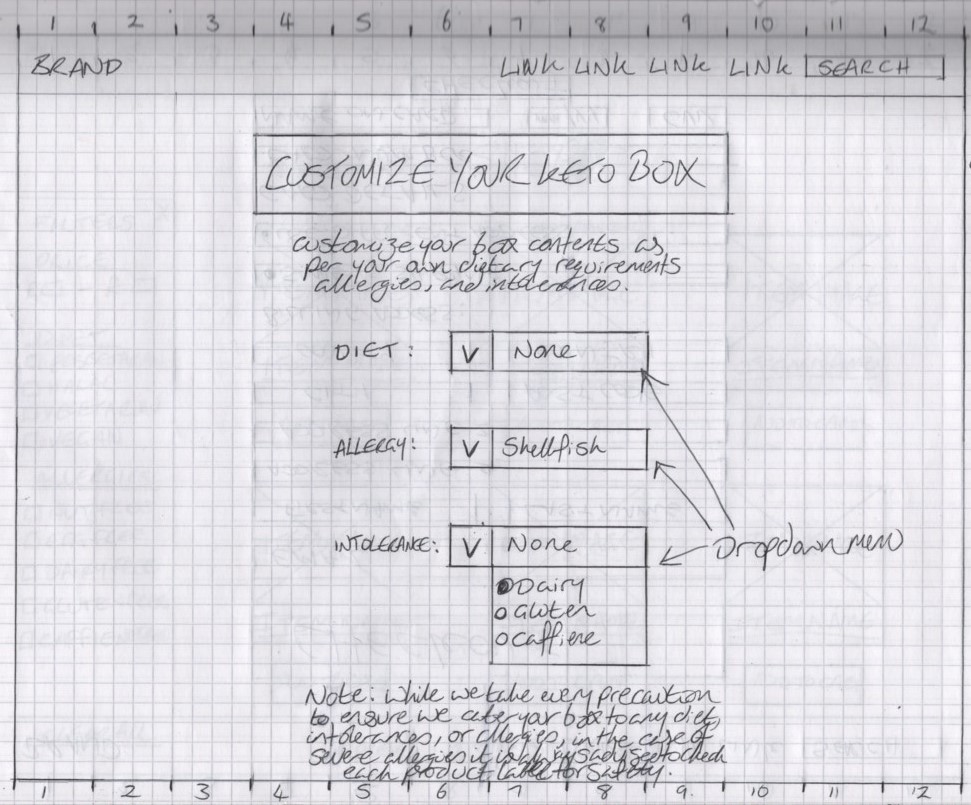 1 2 3 4 5 6 7 8 9 10 11 12
BRAND LINK LINK LINK LINK SEARCH
CUSTOMIZE YOUR KETO BOX
customize your box contents as
per your own dietary requirements
allergies, and intolerances.
DIET: V None
ALLERGY: V Shellfish
INTOLERANCE: V None
Dropdown menu
Dairy
Gluten
Caffiene
Note: while we take every precaution
to ensure we cater your box to any diet,
intolerances, or allergies, in the case of
severe allergies it is check
each product label for safety.
1 2 3 4 5 6 7 8 9. 10 11 12